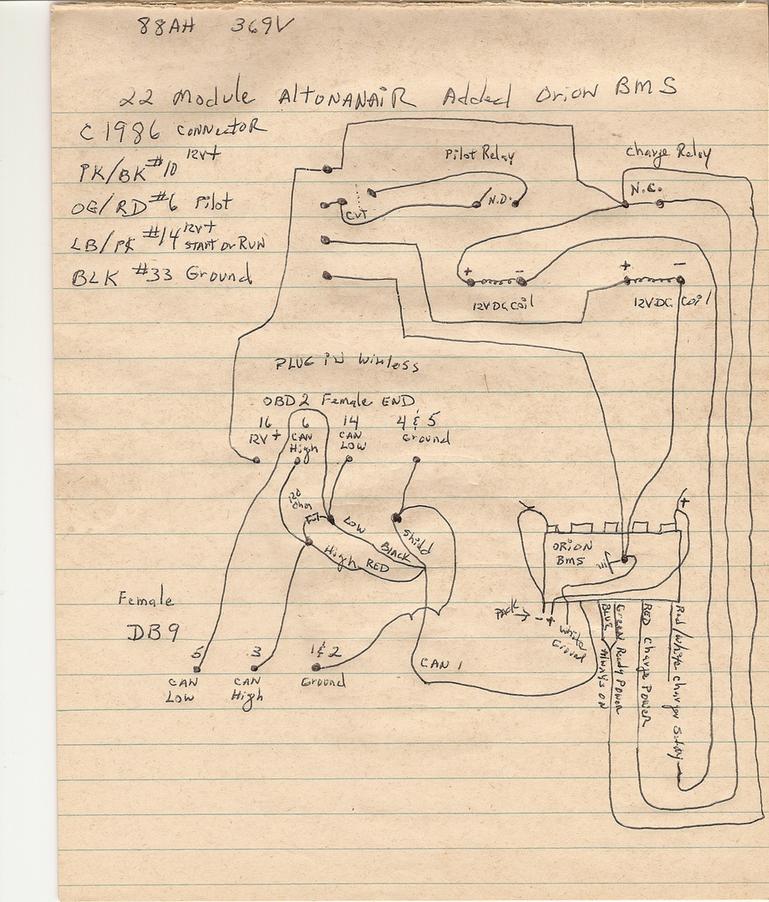 88AH 369V
22 Module ALTONANAIR Added Orion BMS
C1986 CONNECTOR
PK/BK #10 12V+
OG/RD #6 Pilot
LB/PK #14 12V+ START OR RUN
BLK #33 Ground
Pilot Relay
Charge Relay
N.O.
N.C.
CUT
+ -
12VDC Coil
+ -
12VDC Coil
PLUG IN Wireless
OBD2 Female END
16 6 14 4 & 5
12V + CAN High CAN LOW Ground
120 ohm
LOW
Black
Shield
High RED
ORION
BMS
+
PACK → - +
White Ground
BLUE Always ON
Green Ready Power
RED Charge POWER
Red/White Charger Safety
Female
DB9
5 3 1 & 2
CAN Low CAN High Ground
CAN 1